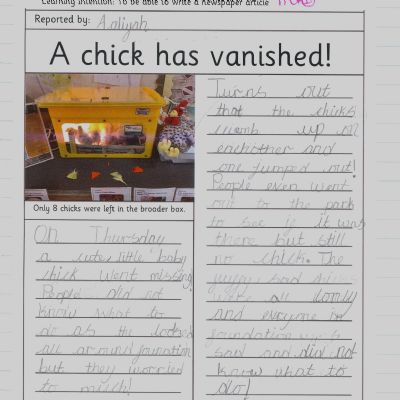 Learning Intention: To be able to write a newspaper article
Reported by: Aaliyah
A chick has vanished!
Only 8 chicks were left in the brooder box.
On Thursday
a cute little baby
chick went missing
People did not
know what to
do as the looked
all around founation
but they worried
to much!
Turns out
that the chiks
up on
enchother and
one jumped out!
People even went
out to the park
to see if it was
there but still
no chick. The
sad
were all lonly
and everyone in
foundation
sad and did not
know what to
do!